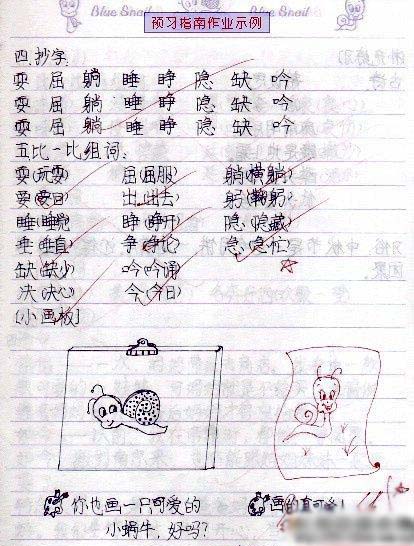 Blue Snail 预习指南作业示例 Blue Snail
四.抄字.
耍 屈 躺 睡 睁 隐 缺 吟
耍 屈 躺 睡 睁 隐 缺 吟
耍 屈 躺 睡 睁 隐 缺 吟
五比一比组词:
耍(玩耍) 屈(屈服) 躺(横躺)
出(出去) 躬(鞠躬)
睡(睡觉) 睁(睁开) 隐(隐藏)
垂(垂直) 争(争论) 急(急忙)
缺(缺少) 吟(吟诵)
决(决心) 今(今日)
[小画板]
你也画一只可爱的 画的真可爱!
小蜗牛,好吗?